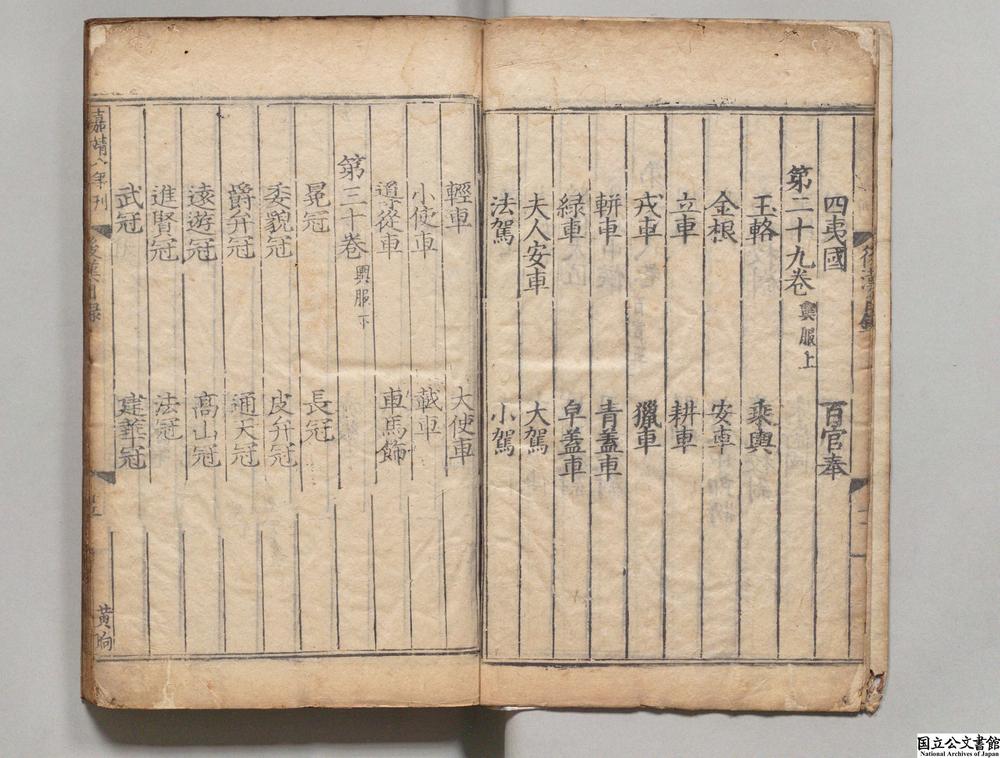 四夷國 百官奉
第二十九卷 輿服上
玉輅 乘輿
金根 安車
立車 耕車
戎車 獵車
軿車 青蓋車
綠車 皁蓋車
夫人安車 大駕
法駕 小駕
輕車 大使車
小使車 載車
導從車 車馬飾
第三十卷 輿服下
冕冠 長冠
委貌冠 皮弁冠
爵弁冠 通天冠
遠遊冠 高山冠
進賢冠 法冠
武冠 建華冠
嘉靖八年刊
黃
国立公文書館
National Archives of Japan